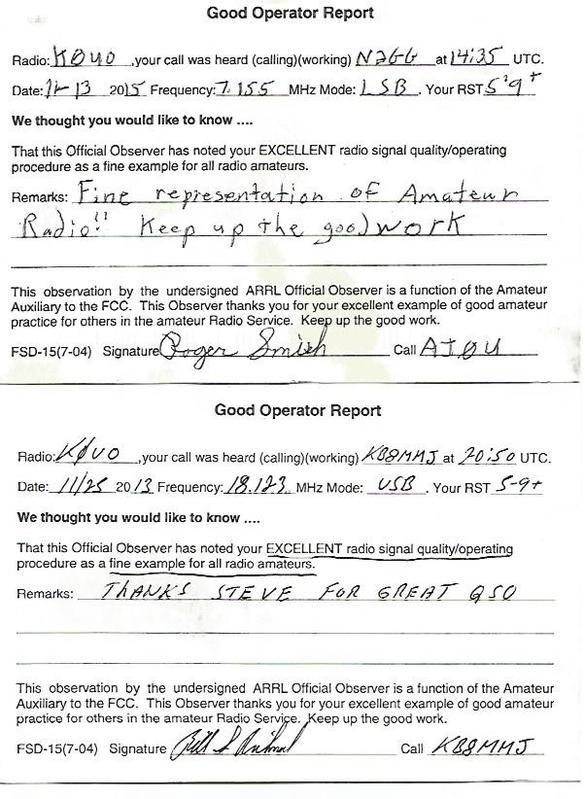 Good Operator Report
Radio: KØUO ,your call was heard (calling)(working) N2GG at 14:35 UTC.
Date: 11-13 2015 Frequency: 7.155 MHz Mode: LSB . Your RST 5'9+
We thought you would like to know ....
That this Official Observer has noted your EXCELLENT radio signal quality/operating
procedure as a fine example for all radio amateurs.
Remarks: Fine representation of Amateur
Radio!! Keep up the good work
This observation by the undersigned ARRL Official Observer is a function of the Amateur
Auxiliary to the FCC. This Observer thanks you for your excellent example of good amateur
practice for others in the amateur Radio Service. Keep up the good work.
FSD-15(7-04) Signature Roger Smith Call
Good Operator Report
Radio: KØUO ,your call was heard (calling)(working) KB8MMJ at 20:50 UTC.
Date: 11/25 2013 Frequency: 18.123 MHz Mode: USB . Your RST 5-9+
We thought you would like to know ....
That this Official Observer has noted your EXCELLENT radio signal quality/operating
procedure as a fine example for all radio amateurs.
Remarks: THANKS STEVE FOR GREAT QSO
This observation by the undersigned ARRL Official Observer is a function of the Amateur
Auxiliary to the FCC. This Observer thanks you for your excellent example of good amateur
practice for others in the amateur Radio Service. Keep up the good work.
FSD-15(7-04) Signature Call KB8MMJ